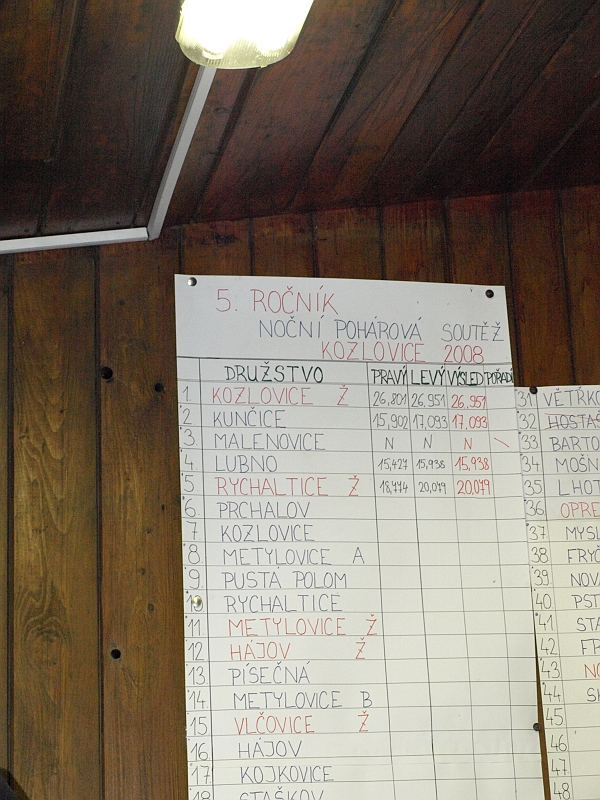 5. ROČNÍK
NOČNÍ POHÁROVÁ SOUTĚŽ
KOZLOVICE 2008
DRUŽSTVO PRAVÝ LEVÝ VÝSLED POŘADÍ
1. KOZLOVICE Ž 26,801 26,951 26,951
2. KUNČICE 15,902 17,093 17,093
3. MALENOVICE N N N \
4. LUBNO 15,427 15,938 15,938
5. RYCHALTICE Ž 18,774 20,079 20,079
6. PRCHALOV
7. KOZLOVICE
8 METYLOVICE A
9. PUSTÁ POLOM
10 RYCHALTICE
11 METYLOVICE Ž
12. HÁJOV Ž
13. PÍSEČNÁ
14. METYLOVICE B
15 VLČOVICE Ž
16. HÁJOV
17. KOJKOVICE
18 STAŠKOV
31
32
33
34
35
36
37
38
39
40
41
42
43
44
45
46
47
48